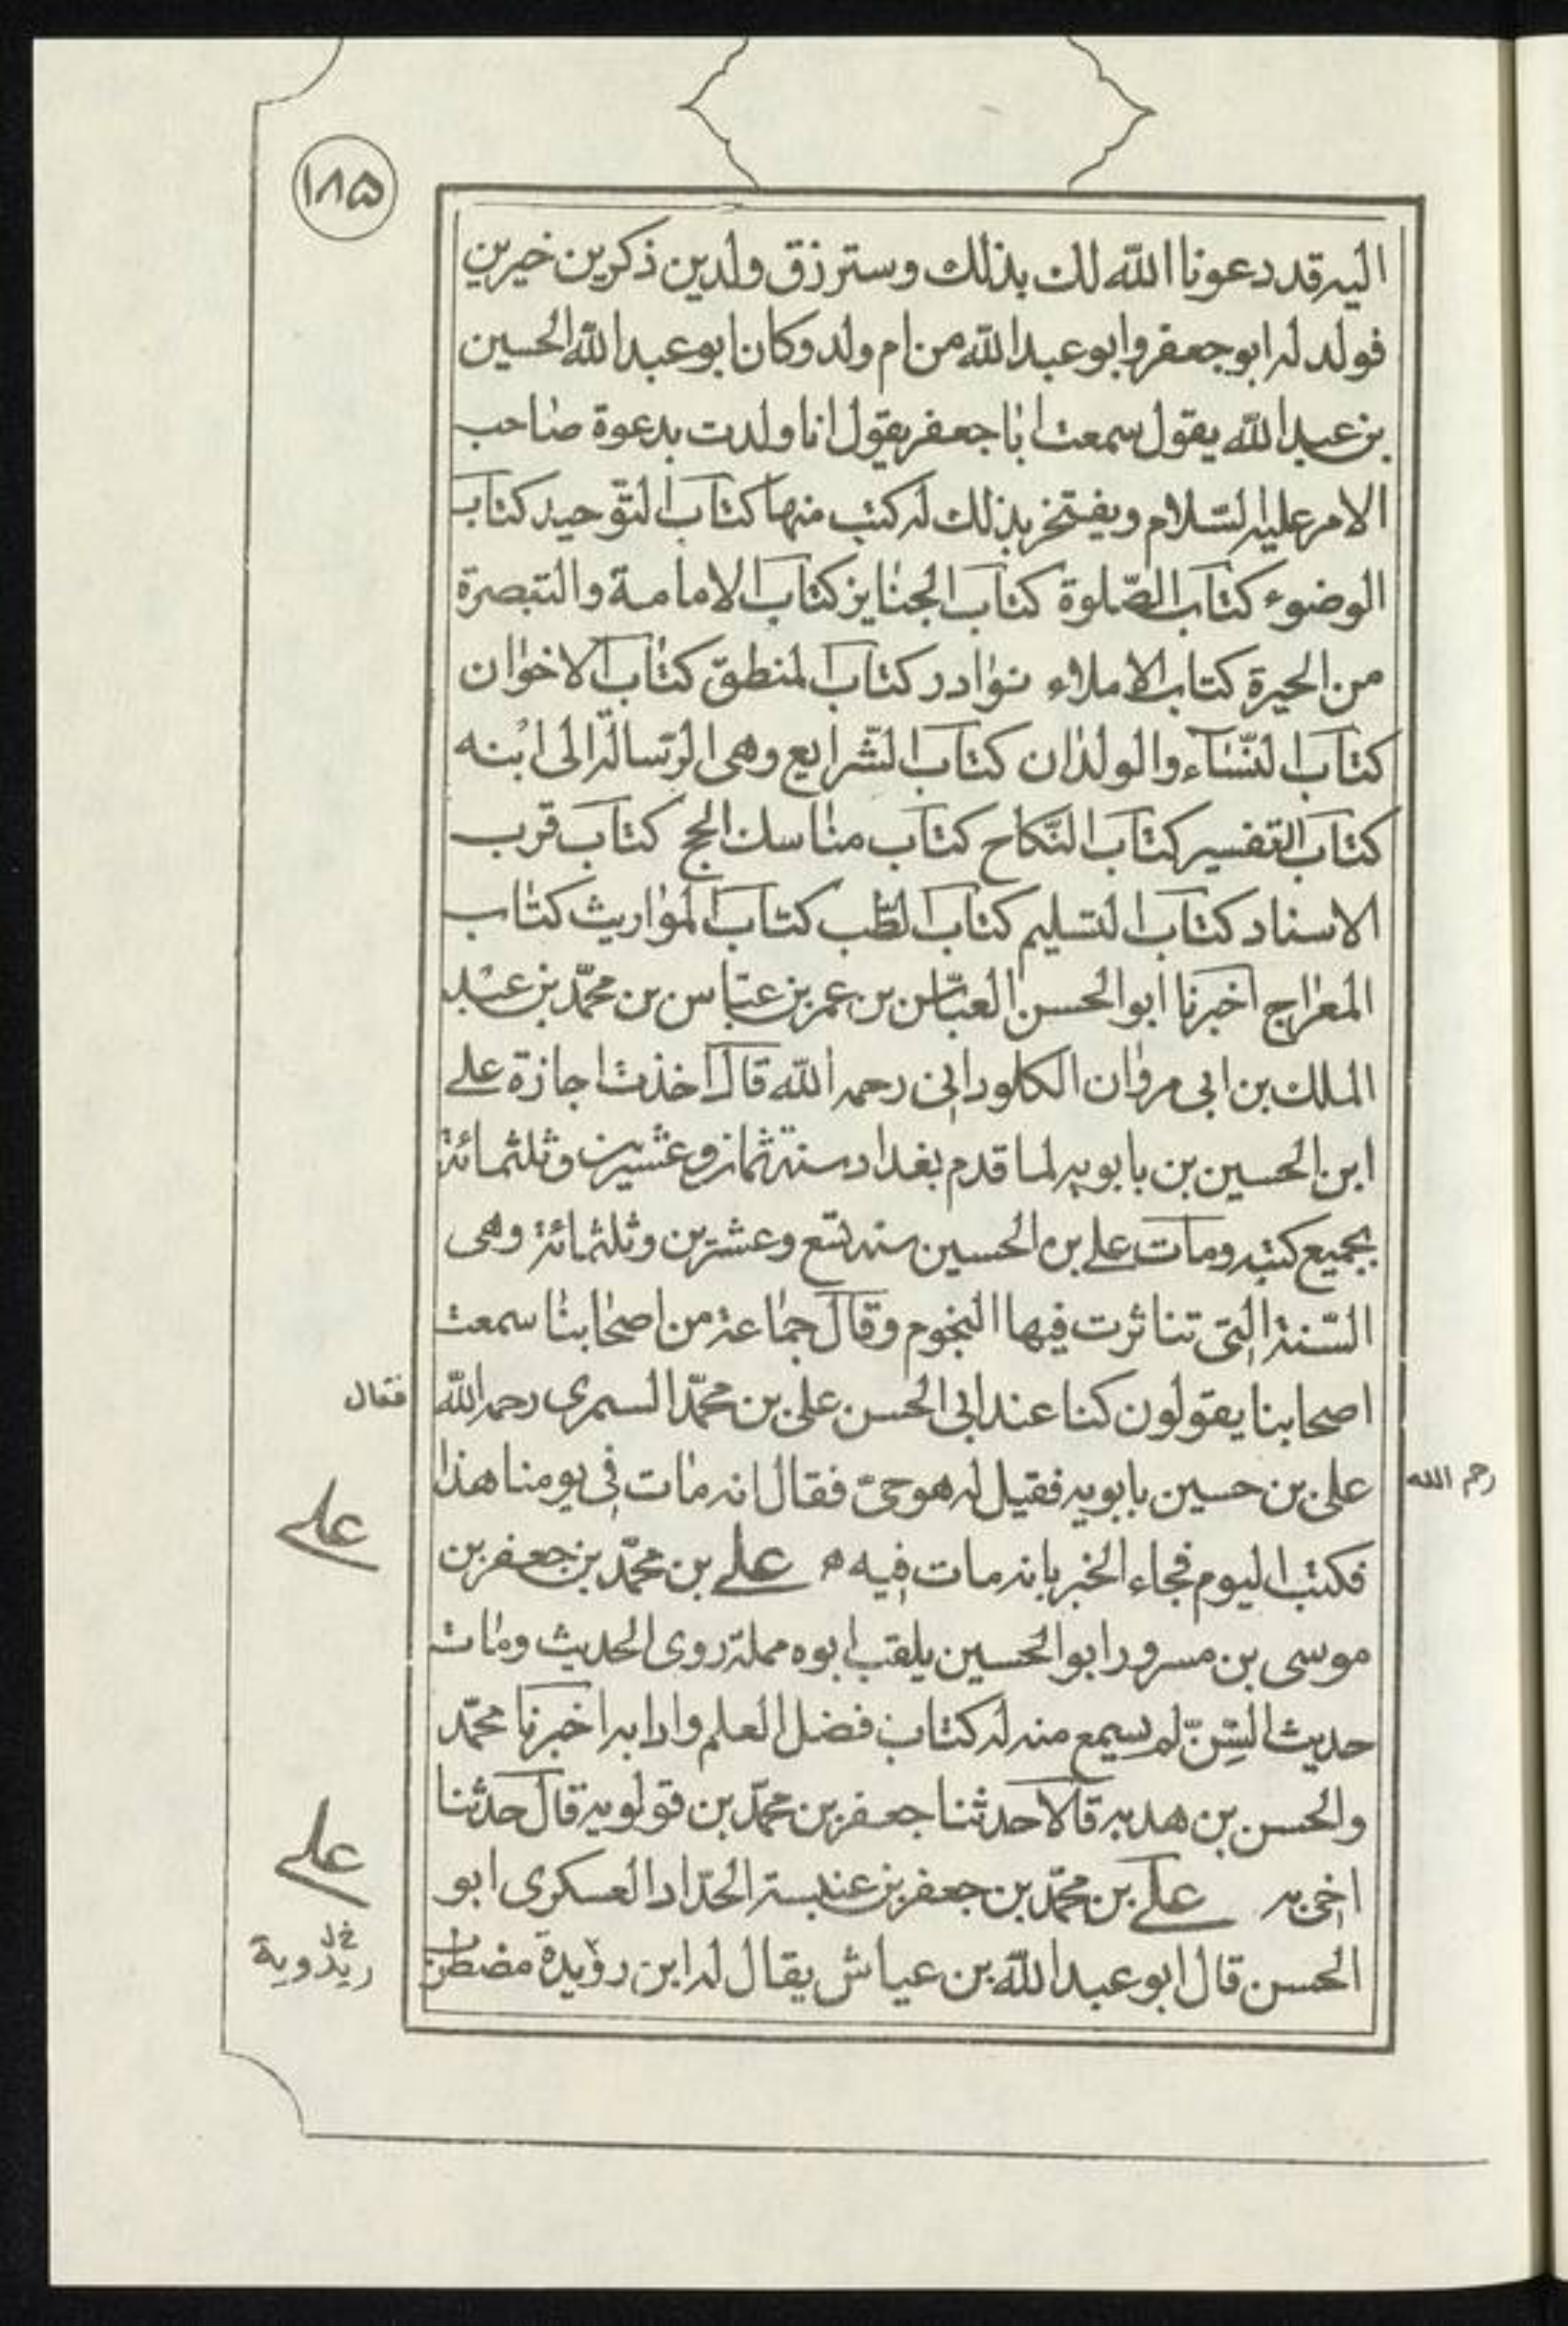 ١٨٥
اليه قد دعونا الله لك بذلك وسترزق ولدين ذكرين خيرين
فولد له ابو جعفر وابو عبد الله من ام ولد وكان ابو عبد الله الحسين
بن عبد الله يقول سمعت ابا جعفر يقول انا ولدت بدعوة صاحب
الامر عليه السّلام ويفتخر بذلك له كتب منها كتاب التّوحيد كتاب
الوضوء كتاب الصّلوة كتاب الجنايز كتاب الامامة والتبصرة
من الحيرة كتاب الاملاء نوادر كتاب المنطق كتاب الاخوان
كتاب النّساء والولدان كتاب الشّرايع وهى الرّسالة الى ابنه
كتاب التفسير كتاب النّكاح كتاب مناسك الحج كتاب قرب
الاسناد كتاب التسليم كتاب الطّب كتاب المواريث كتاب
المعراج اخبرنا ابو الحسن العبّاس بن عمر بن عبّاس بن محمّد بن عبد
الملك بن ابى مروان الكلوذانى رحمه الله قال اخذت اجازة على
ابن الحسين بن بابويه لما قدم بغداد سنة ثمان وعشرين وثلثمائة
بجميع كتبه ومات على بن الحسين سنه تسع وعشرين وثلثمائة وهى
السّنة التى تناثرت فيها النجوم وقال جماعة من اصحابنا سمعت
اصحابنا يقولون كنا عند ابى الحسن على بن محمّد السمرى رحمه الله
فقال
على بن حسين بابويه فقيل له هو حىّ فقال انه مات فى يومنا هذا
رحم الله
فكتب اليوم فجاء الخبر بانه مات فيه ه على بن محمّد بن جعفر بن
على
موسى بن مسرور ابو الحسين يلقب ابوه مملة روى الحديث ومات
حديث السّنّ لم يسمع منه له كتاب فضل العلم وادابه اخبرنا محمّد
والحسن بن هديه قالا حدثنا جعفر بن محمّد بن قولويه قال حدثنا
اخى به على بن محمّد بن جعفر بن عنبسة الحدّاد العسكرى ابو
على
الحسن قال ابو عبد الله بن عياش يقال له ابن رؤيدة مضطرب
ريذوية